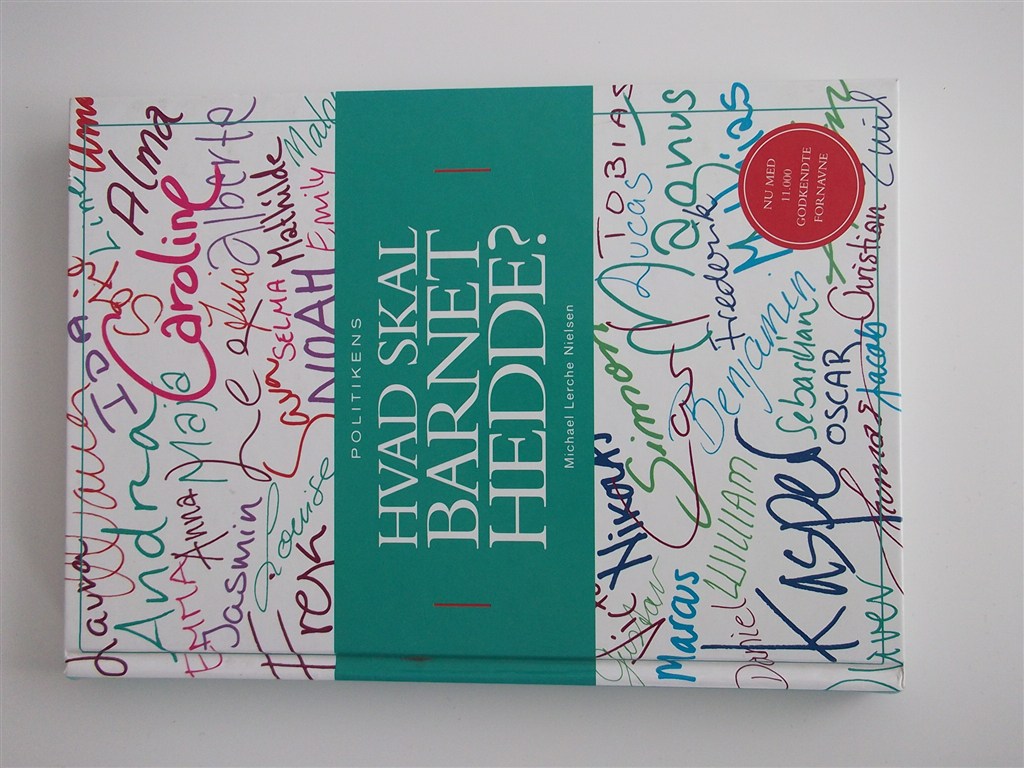 Laura
Andrea
Ida
Line
Alma
EMMA
Anna
Maja
Caroline
Jasmin
Julie
Alberte
Louise
SELMA
Mathilde
NOAH
Emily
POLITIKENS
HVAD SKAL
BARNET
HEDDE?
Michael Lerche Nielsen
TOBIAS
Nikolaj
Simon
Lucas
Gustav
Magnus
Marcus
Frederik
WILLIAM
Benjamin
Daniel
Sebastian
Kasper
OSCAR
Jacob
Christian
Emil
Oliver
NU MED
11.000
GODKENDTE
FORNAVNE